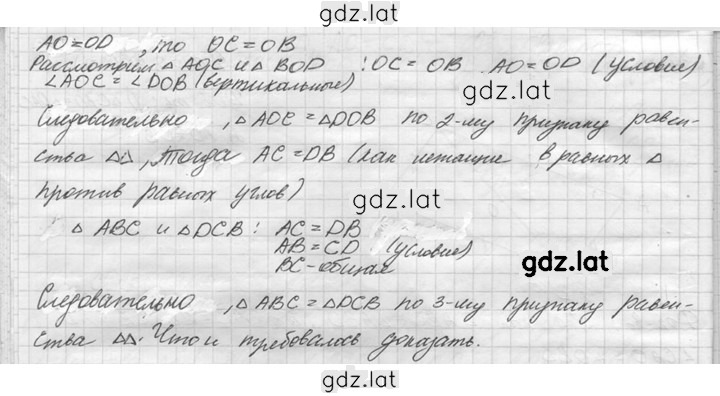 gdz.lat
AO=OD , то OC=OB
Рассмотрим △AOC и △BOD : OC=OB AO=OD (условие)
∠AOC=∠DOB (вертикальные)
gdz.lat
Следовательно , △AOC=△DOB по 2-му признаку равен-
ства △△, Тогда AC=DB (как лежащие в равных △
gdz.lat
против равных углов)
△ABC и △DCB : AC=DB
AB=CD (условие)
BC-общая
gdz.lat
gdz.lat
Следовательно , △ABC=△DCB по 3-му признаку равен-
ства △△. Что и требовалось доказать.
gdz.lat
gdz.lat